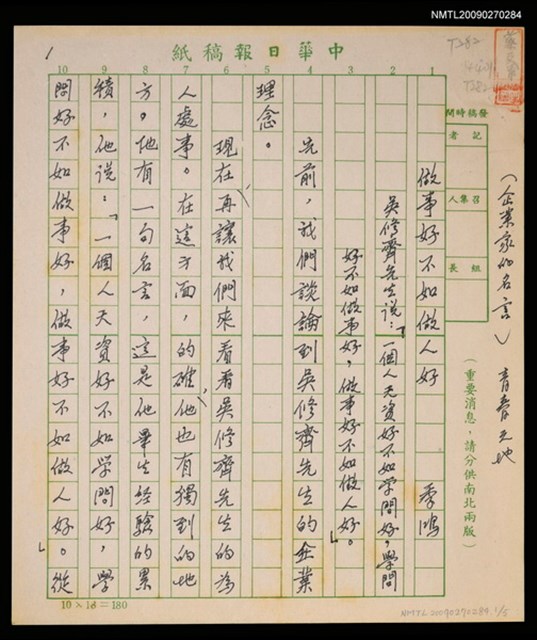 NMTL20090270284
紙稿報日華中
1
T282
10 9 8 7 6 5 4 3 2 1
間時稿發
者 記
人集召
長 組
(重要消息,請分供南北兩版)
(企業家的名言) 青春天地
做事好不如做人好 季鴻
吳修齊先生說:「一個人天資好不如学問好,學問
好不如做事好,做事好不如做人好。」
先前,我們談論到吳修齊先生的企業
理念。
現在再讓我們來看看吳修齊先生的為
人處事。在這方面,的確他也有獨到的地
方。他有一句名言,這是他畢生經驗的累
積,他說:「一個人天資好不如學問好,學
問好不如做事好,做事好不如做人好。」從
10×18=180
NMTL20090270284.1/5